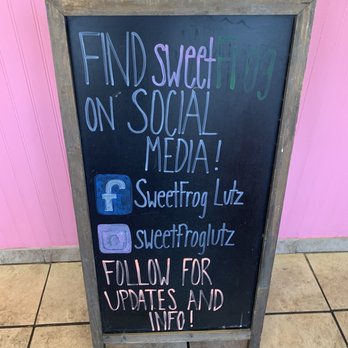 FIND sweetFrog
ON SOCIAL
MEDIA!
f SweetFrog Lutz
sweetfroglutz
FOLLOW FOR
UPDATES AND
INFO!